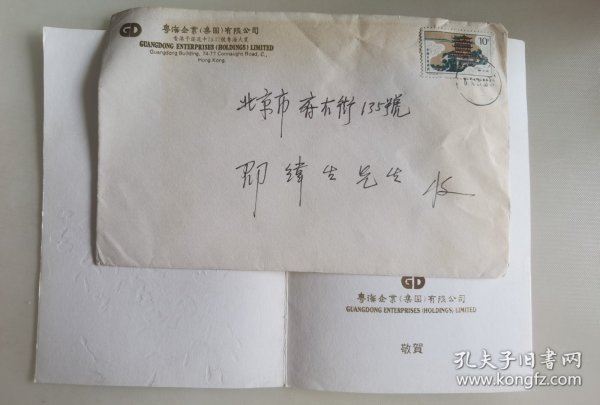 GD
粤海企業(集团)有限公司
GUANGDONG ENTERPRISES (HOLDINGS) LIMITED
Guangdong Building, 74-77 Connaught Road, C.,
Hong Kong.
10分
北京市 府右街 135號
緯 生 先生 收
GD
粤海企業(集团)有限公司
GUANGDONG ENTERPRISES (HOLDINGS) LIMITED
敬賀
孔夫子旧書网
www.kongfz.com